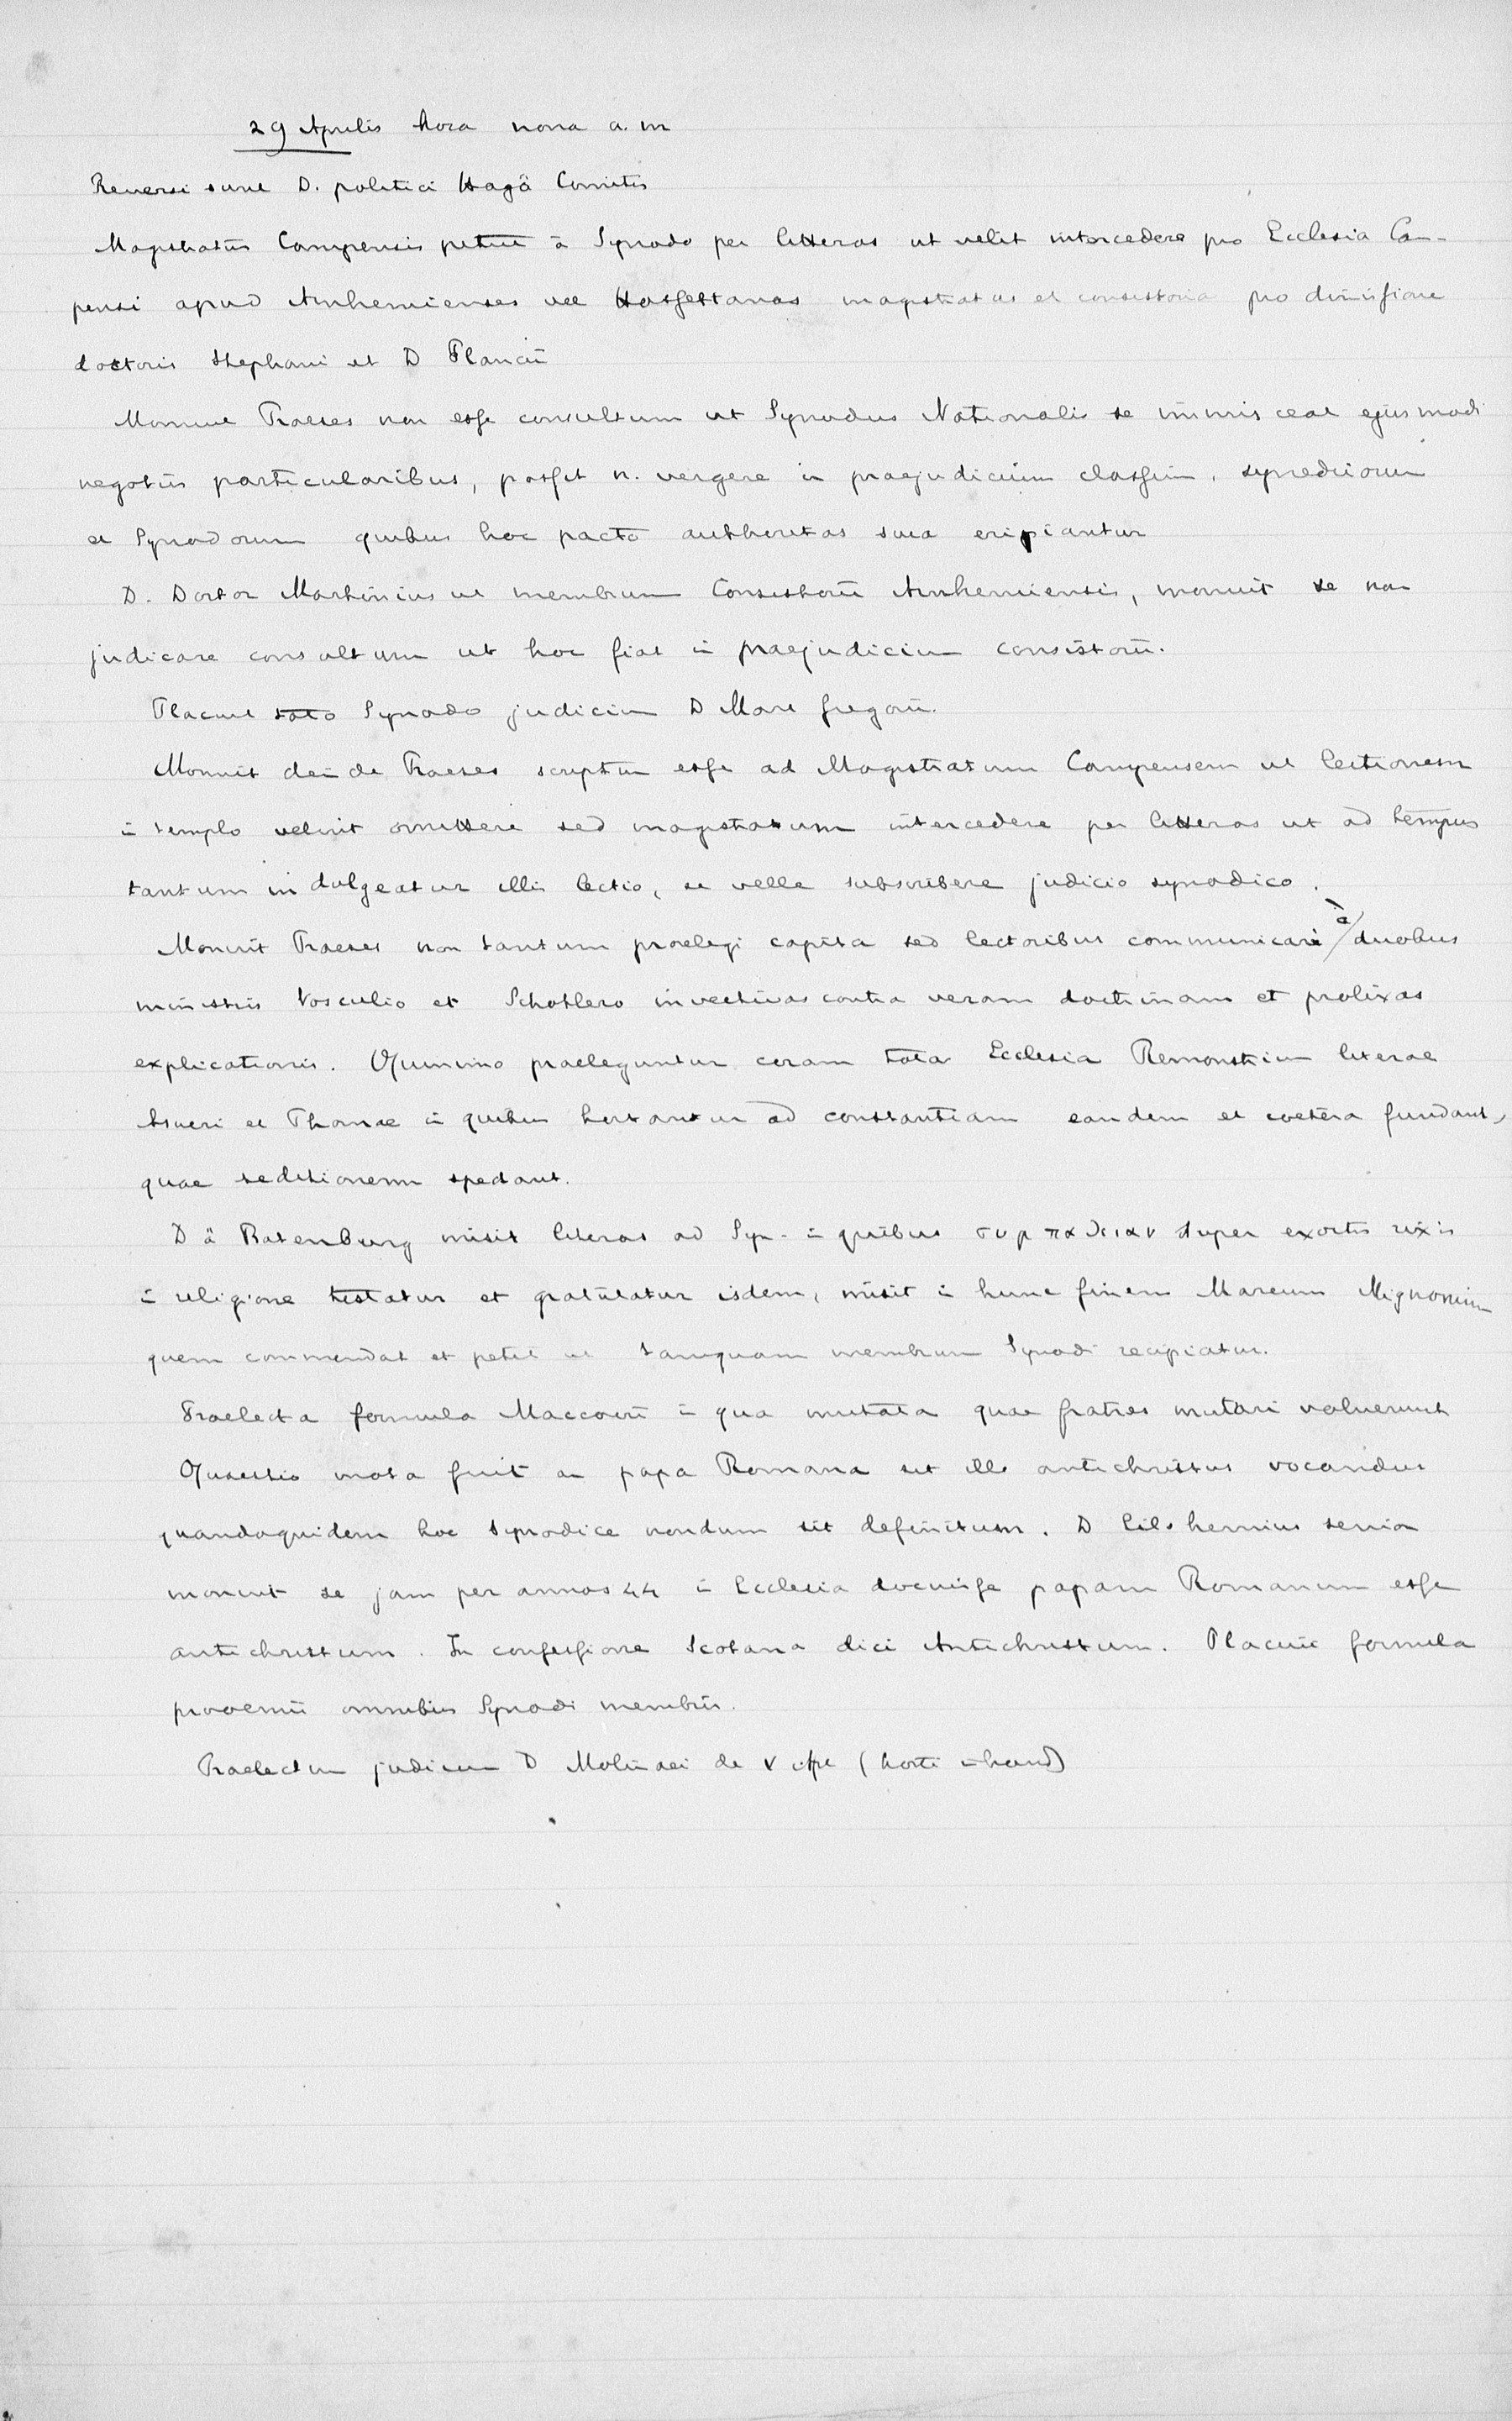 29 Aprilis hora nona a. m
Reversi sunt D. politici Hagâ Comitis
Magistratus Campensis petiit à Synodo per litteras ut velit intercedere pro Ecclesia Cam-
pensi apud Arnhemienses vel Hasseltanos magistratus et consistoria pro dimissione
doctoris Stephani et D Plancii
Monuit Praeses non esse consultum ut Synodus Nationalis se immisceat ejusmodi
negotiis particularibus, posset n. vergere in praejudicium classium, synedriorum
et Synodorum quibus hoc pacto authoritas sua eripiantur
D. Doctor Martinius ut membrum Consistorii Arnhemiensis, monuit se non
judicare consultum ut hoc fiat in praejudicium consistorii.
Placuit toto Synodo judicium D Mart Gregorii.
Monuit deinde Praeses scriptum esse ad Magistratum Campensem ut lectionem
in templo velint omittere sed magistratum intercedere per litteras ut ad tempus
tantum indulgeatur illis lectio, se velle subscribere judicio synodico.
Monuit Praeses non tantum praelegi capita sed lectoribus communicari à duobus
ministris Vosculio et Schotlero invectivas contra veram doctrinam et prolixas
explicationis. Quinimo praeleguntur coram tota Ecclesia Remonstrium literae
Assueri et Thomae in quibus hortantur ad constantiam eandem et coetera fundant,
quae seditionem spectant.
D à Batenburg misit literas ad Syn. in quibus συμπαθειαν super exortis rixis
in religione testatur et gratulatur isdem, misit in hunc finem Marcum Mignonium
quem commendat et petit ut tamquam membrum Synodi recipiatur.
Praelecta formula Maccovii in qua mutata quae fratres mutari voluerunt
Quaestio mota fuit an papa Romana sit ille antichristus vocandus
quandoquidem hoc synodice nondum sit definitum. D senior
monuit se jam per annos 44 in Ecclesia docuisse papam Romanum esse
antichristum. In confessione Scotana dici Antichristum. Placuit formula
prooemii omnibus Synodi membris.
Praelectum judicium D Molinaei de V